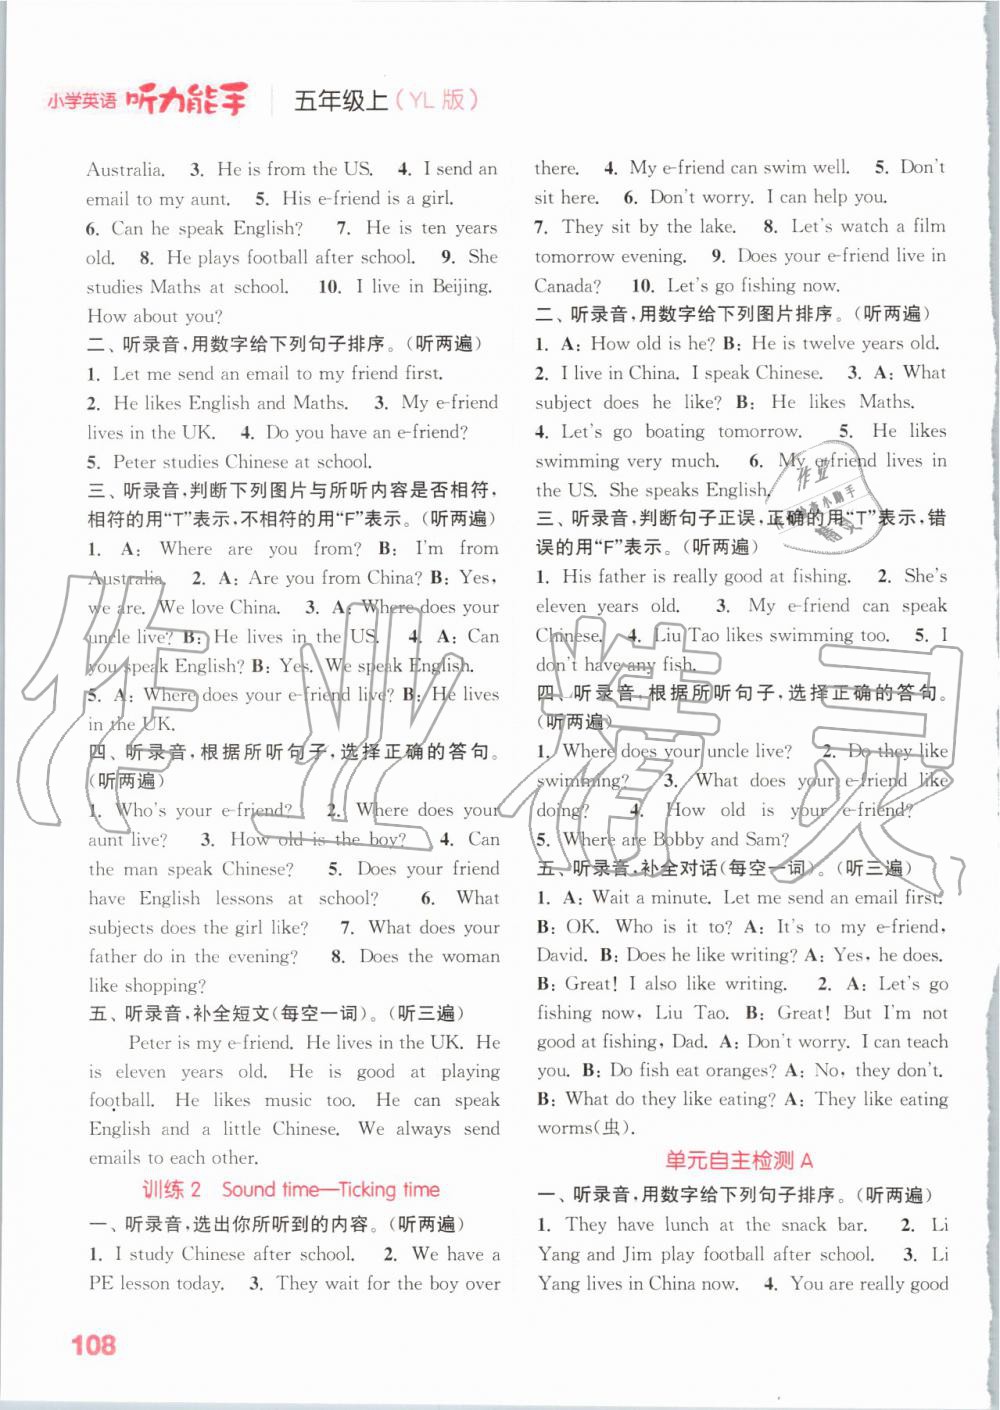 小学英语 听力能手 五年级上(YL版)
Australia. 3. He is from the US. 4. I send an
email to my aunt. 5. His e-friend is a girl.
6. Can he speak English? 7. He is ten years
old. 8. He plays football after school. 9. She
studies Maths at school. 10. I live in Beijing.
How about you?
二、听录音,用数字给下列句子排序。(听两遍)
1. Let me send an email to my friend first.
2. He likes English and Maths. 3. My e-friend
lives in the UK. 4. Do you have an e-friend?
5. Peter studies Chinese at school.
三、听录音,判断下列图片与所听内容是否相符,
相符的用“T”表示,不相符的用“F”表示。(听两遍)
1. A: Where are you from? B: I'm from
Australia. 2. A: Are you from China? B: Yes,
we are. We love China. 3. A: Where does your
uncle live? B: He lives in the US. 4. A: Can
you speak English? B: Yes. We speak English.
5. A: Where does your e-friend live? B: He lives
in the UK.
四、听录音,根据所听句子,选择正确的答句。
(听两遍)
1. Who's your e-friend? 2. Where does your
aunt live? 3. How old is the boy? 4. Can
the man speak Chinese? 5. Does your friend
have English lessons at school? 6. What
subjects does the girl like? 7. What does your
father do in the evening? 8. Does the woman
like shopping?
五、听录音,补全短文(每空一词)。(听三遍)
Peter is my e-friend. He lives in the UK. He
is eleven years old. He is good at playing
football. He likes music too. He can speak
English and a little Chinese. We always send
emails to each other.
训练2 Sound time—Ticking time
一、听录音,选出你所听到的内容。(听两遍)
1. I study Chinese after school. 2. We have a
PE lesson today. 3. They wait for the boy over
there. 4. My e-friend can swim well. 5. Don't
sit here. 6. Don't worry. I can help you.
7. They sit by the lake. 8. Let's watch a film
tomorrow evening. 9. Does your e-friend live in
Canada? 10. Let's go fishing now.
二、听录音,用数字给下列图片排序。(听两遍)
1. A: How old is he? B: He is twelve years old.
2. I live in China. I speak Chinese. 3. A: What
subject does he like? B: He likes Maths.
4. Let's go boating tomorrow. 5. He likes
swimming very much. 6. My e-friend lives in
the US. She speaks English.
三、听录音,判断句子正误,正确的用“T”表示,错
误的用“F”表示。(听两遍)
1. His father is really good at fishing. 2. She's
eleven years old. 3. My e-friend can speak
Chinese. 4. Liu Tao likes swimming too. 5. I
don't have any fish.
四、听录音,根据所听句子,选择正确的答句。
(听两遍)
1. Where does your uncle live? 2. Do they like
swimming? 3. What does your e-friend like
doing? 4. How old is your e-friend?
5. Where are Bobby and Sam?
五、听录音,补全对话(每空一词)。(听三遍)
1. A: Wait a minute. Let me send an email first.
B: OK. Who is it to? A: It's to my e-friend,
David. B: Does he like writing? A: Yes, he does.
B: Great! I also like writing. 2. A: Let's go
fishing now, Liu Tao. B: Great! But I'm not
good at fishing, Dad. A: Don't worry. I can teach
you. B: Do fish eat oranges? A: No, they don't.
B: What do they like eating? A: They like eating
worms(虫).
单元自主检测A
一、听录音,用数字给下列句子排序。(听两遍)
1. They have lunch at the snack bar. 2. Li
Yang and Jim play football after school. 3. Li
Yang lives in China now. 4. You are really good
108
作业精灵